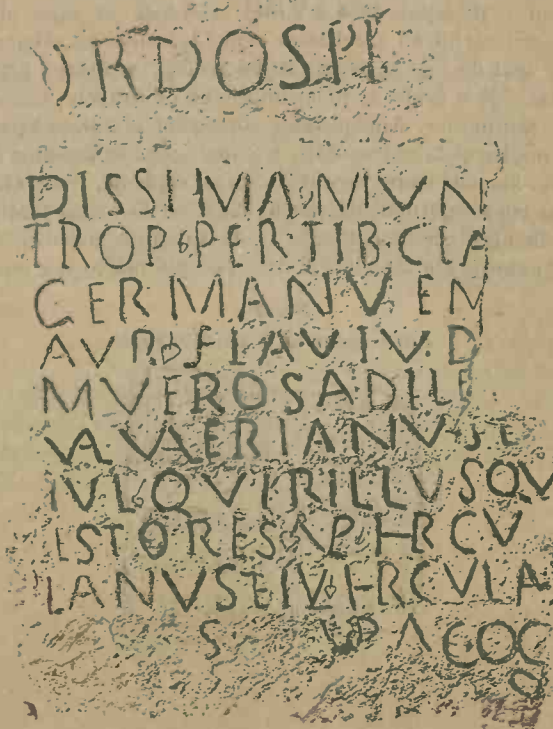 ORDOSPL
DISSIMAMVN
TROP PERTIBCLA
GERMANVEM
AVR FLAVIVD
MVEROSADILE
VALVAERIANVSE
IVL QVIRILLVSQV
ISTORES AP HRCV
LANVSETIVL HRCVLA